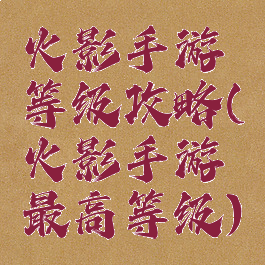 火影手游
等级攻略(
火影手游
最高等级)